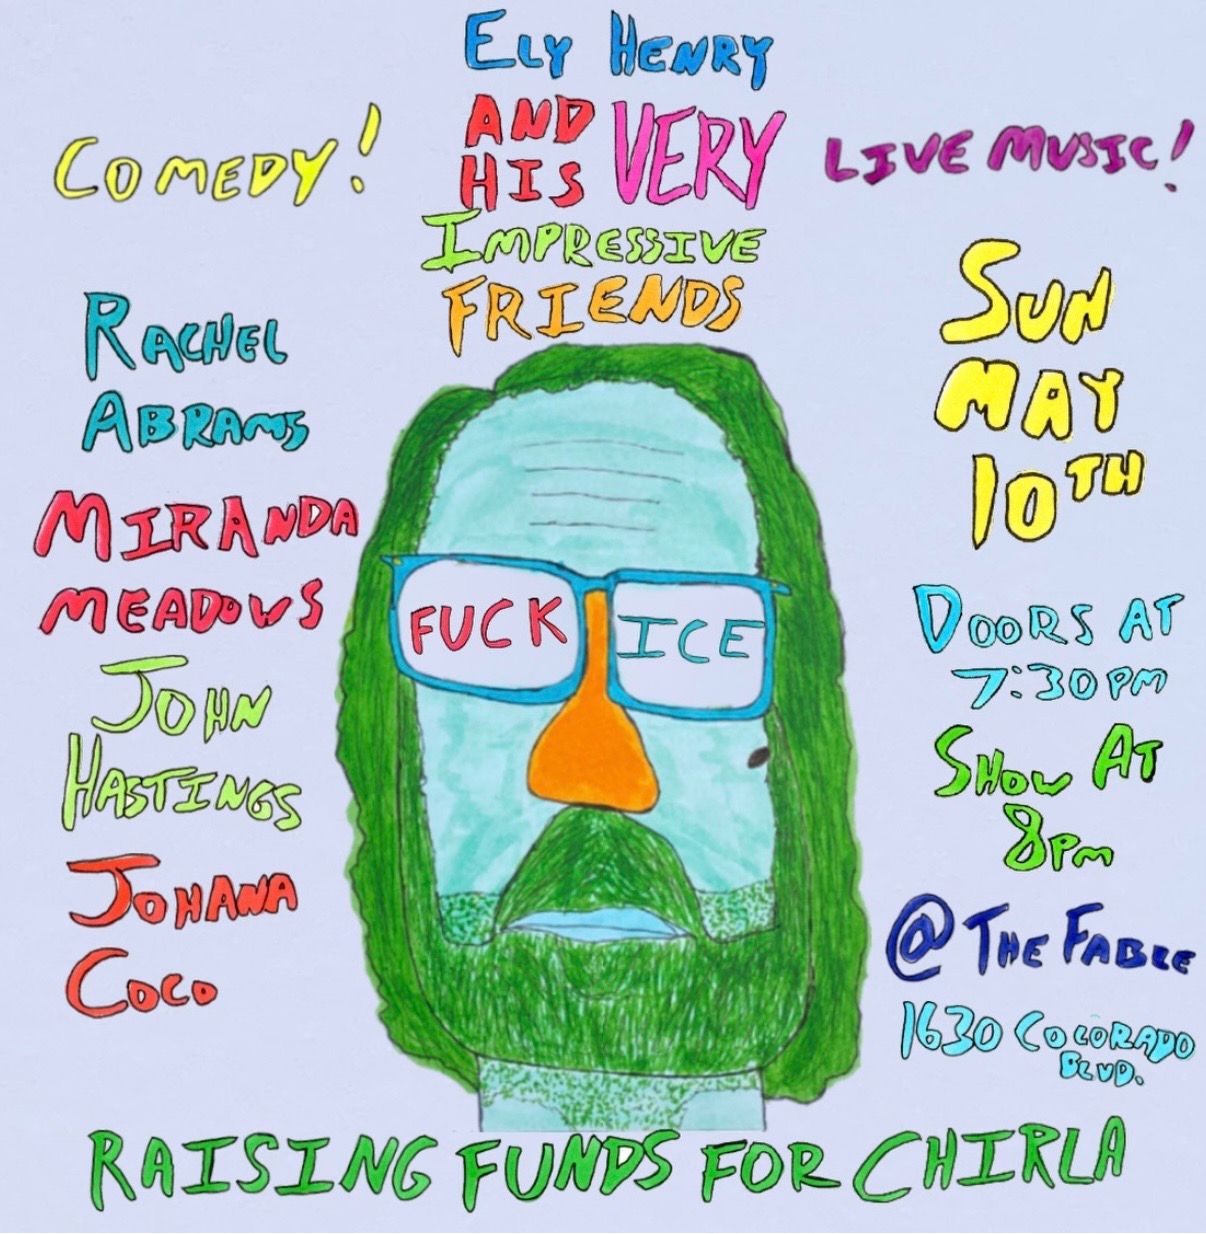 ELY HENRY
AND HIS VERY
IMPRESSIVE
FRIENDS
COMEDY!
LIVE MUSIC!
RACHEL
ABRAMS
MIRANDA
MEADOWS
JOHN
HASTINGS
JOHANA
COCO
FUCK ICE
SUN
MAY
10TH
DOORS AT
7:30PM
SHOW AT
8PM
@ THE FABLE
1630 COLORADO
BLVD.
RAISING FUNDS FOR CHIRLA